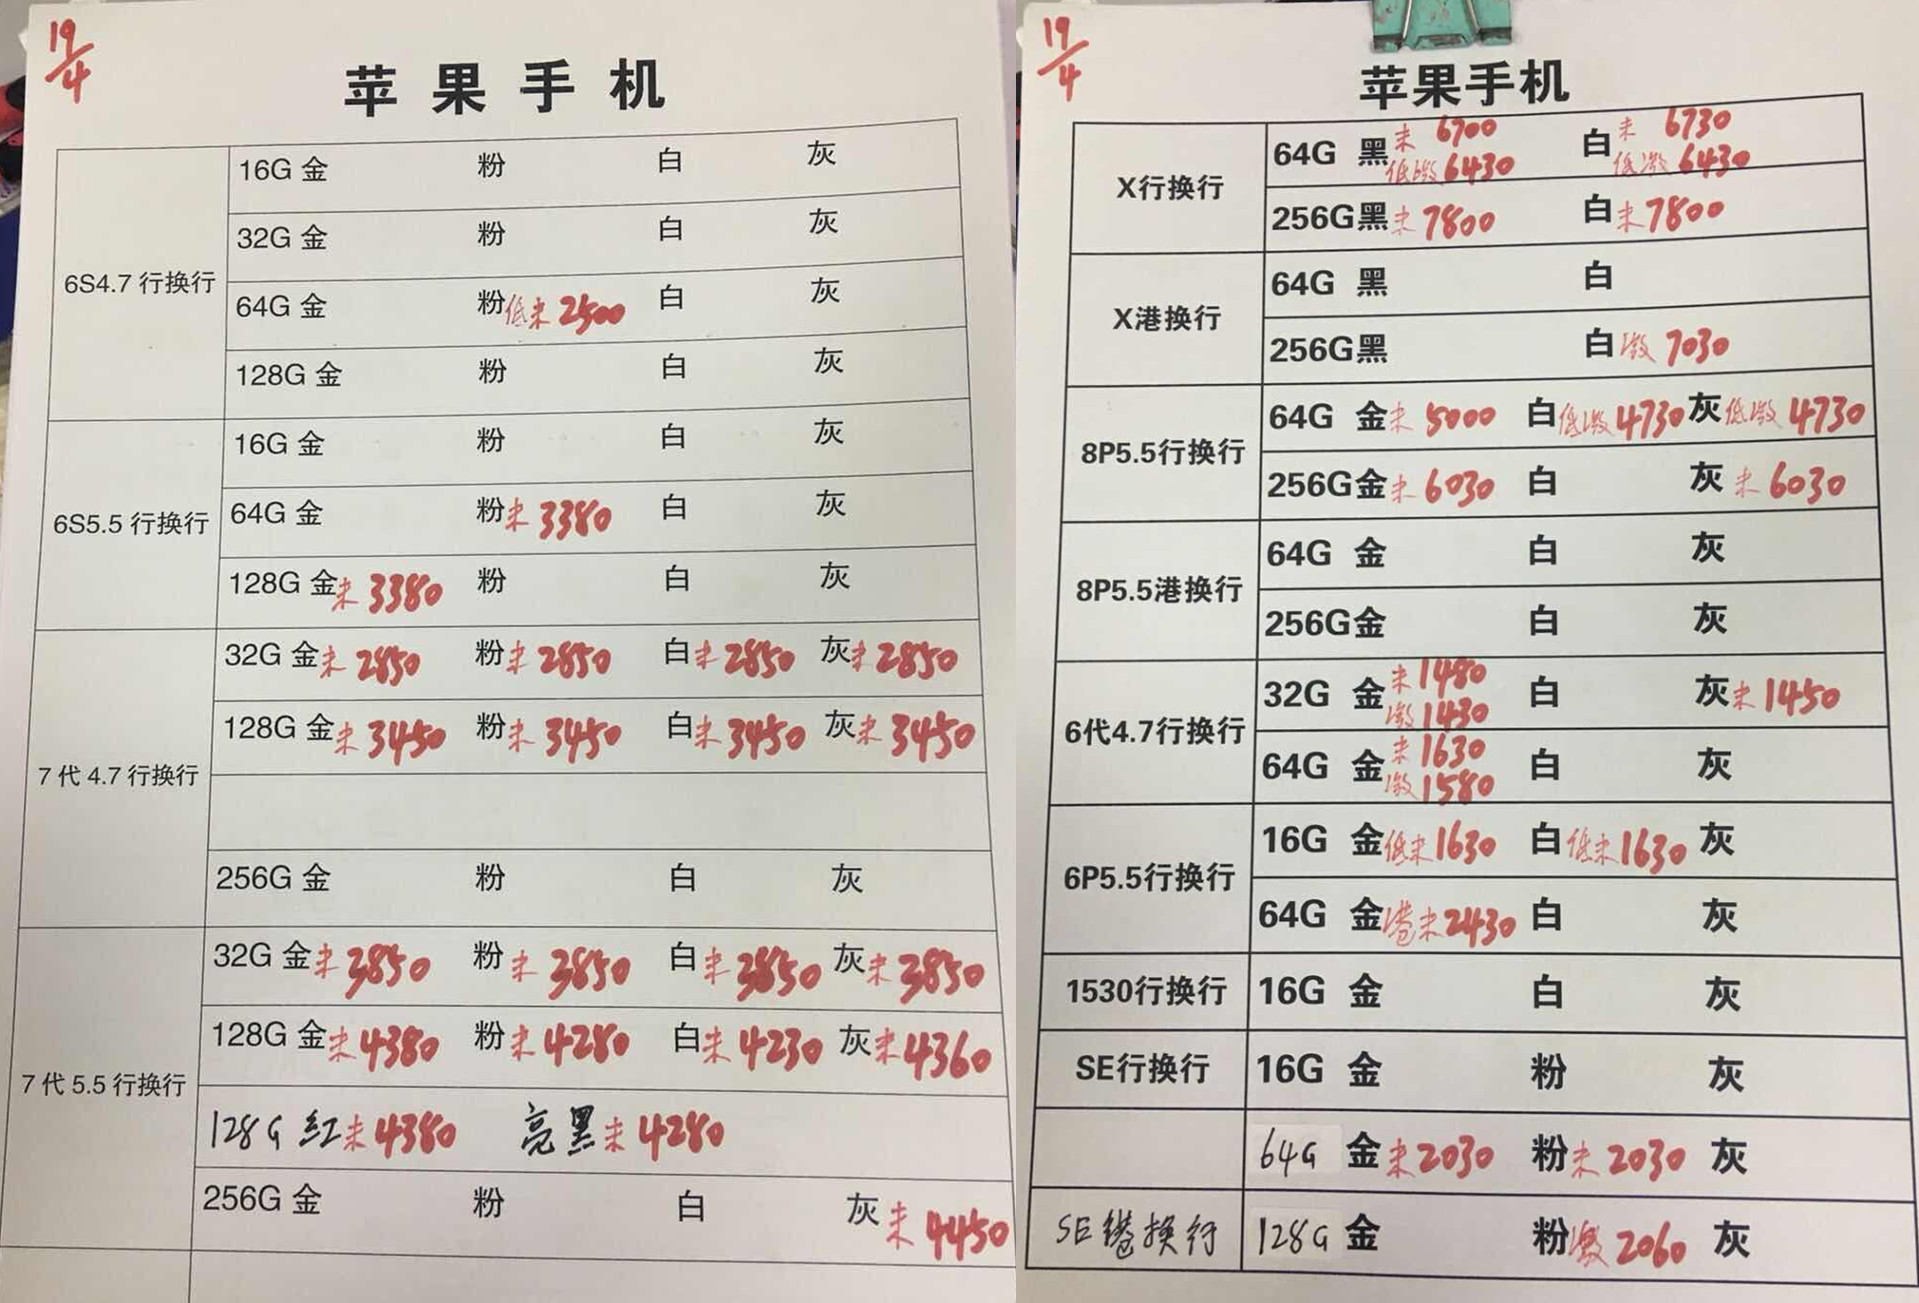 19/4
苹果手机
6S4.7 行换行
16G 金 粉 白 灰
32G 金 粉 白 灰
64G 金 粉 低未 2500 白 灰
128G 金 粉 白 灰
6S5.5 行换行
16G 金 粉 白 灰
64G 金 粉 未 3380 白 灰
128G 金 未 3380 粉 白 灰
7 代 4.7 行换行
32G 金 未 2850 粉 未 2850 白 未 2850 灰 未 2850
128G 金 未 3450 粉 未 3450 白 未 3450 灰 未 3450
256G 金 粉 白 灰
7 代 5.5 行换行
32G 金 未 3850 粉 未 3850 白 未 3850 灰 未 3850
128G 金 未 4380 粉 未 4280 白 未 4230 灰 未 4360
128G 红 未 4380 亮黑 未 4280
256G 金 粉 白 灰 未 4450
19/4
苹果手机
X行换行
64G 黑 未 6700 白 未 6730
低激 6430 低激 6430
256G黑 未 7800 白 未 7800
X港换行
64G 黑 白
256G黑 白 激 7030
8P5.5行换行
64G 金 未 5000 白 低激 4730 灰 低激 4730
256G金 未 6030 白 灰 未 6030
8P5.5港换行
64G 金 白 灰
256G金 白 灰
6代4.7行换行
32G 金 未 1480 白 灰 未 1450
激 1430
64G 金 未 1630 白 灰
激 1580
6P5.5行换行
16G 金 低未 1630 白 低未 1630 灰
64G 金 港未 2430 白 灰
1530行换行
16G 金 白 灰
SE行换行
16G 金 粉 灰
64G 金 未 2030 粉 未 2030 灰
SE港换行
128G 金 粉 激 2060 灰